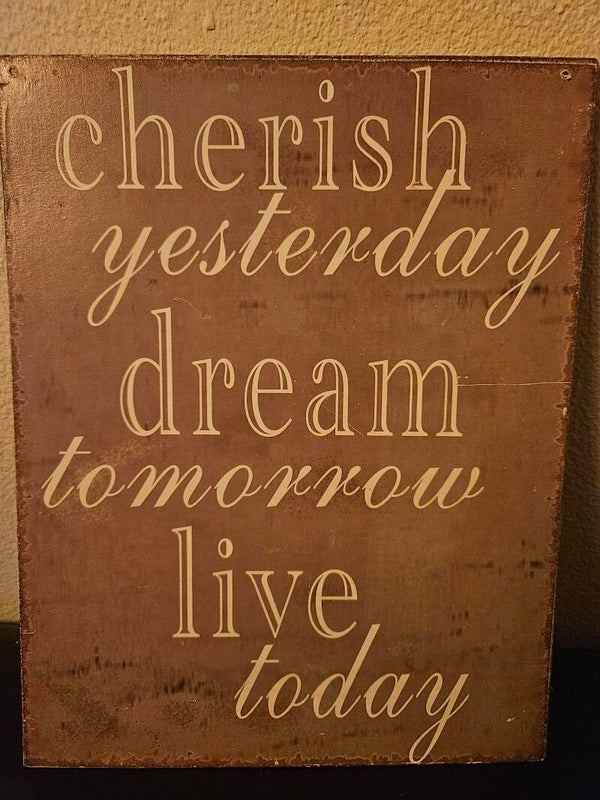 cherish
yesterday
dream
tomorrow
live
today